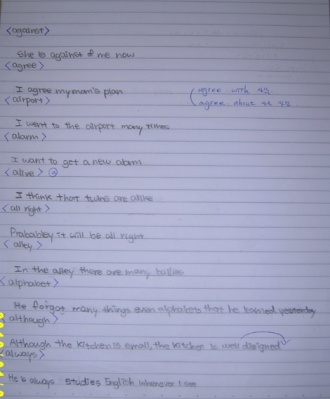 <against>
She is against of me now
<agree>
I agree my mom's plan
agree with
agree about
<airport>
I want to the airport many times
<alarm>
I want to get a new alarm
<alive>
I think that twins are alike
<all right>
Probabley it will be all right
<alley>
In the alley there are many bullies
<alphabet>
He forgot many things even alphabets that he learned yesterday
<although>
Although the kitchen is small, the kitchen is well designed
<always>
He is always studies English whenever I see